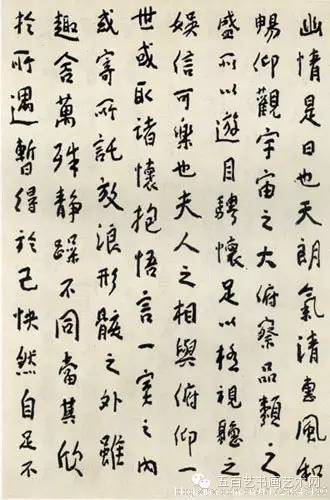 幽情是日也天朗氣清惠風和
暢仰觀宇宙之大俯察品類之
盛所以遊目騁懷足以極視聽之
娛信可樂也夫人之相與俯仰一
世或取諸懷抱悟言一室之內
或寄所託放浪形骸之外雖
趣舍萬殊靜躁不同當其欣
於所遇暫得於己快然自足不
五百艺书画艺术网